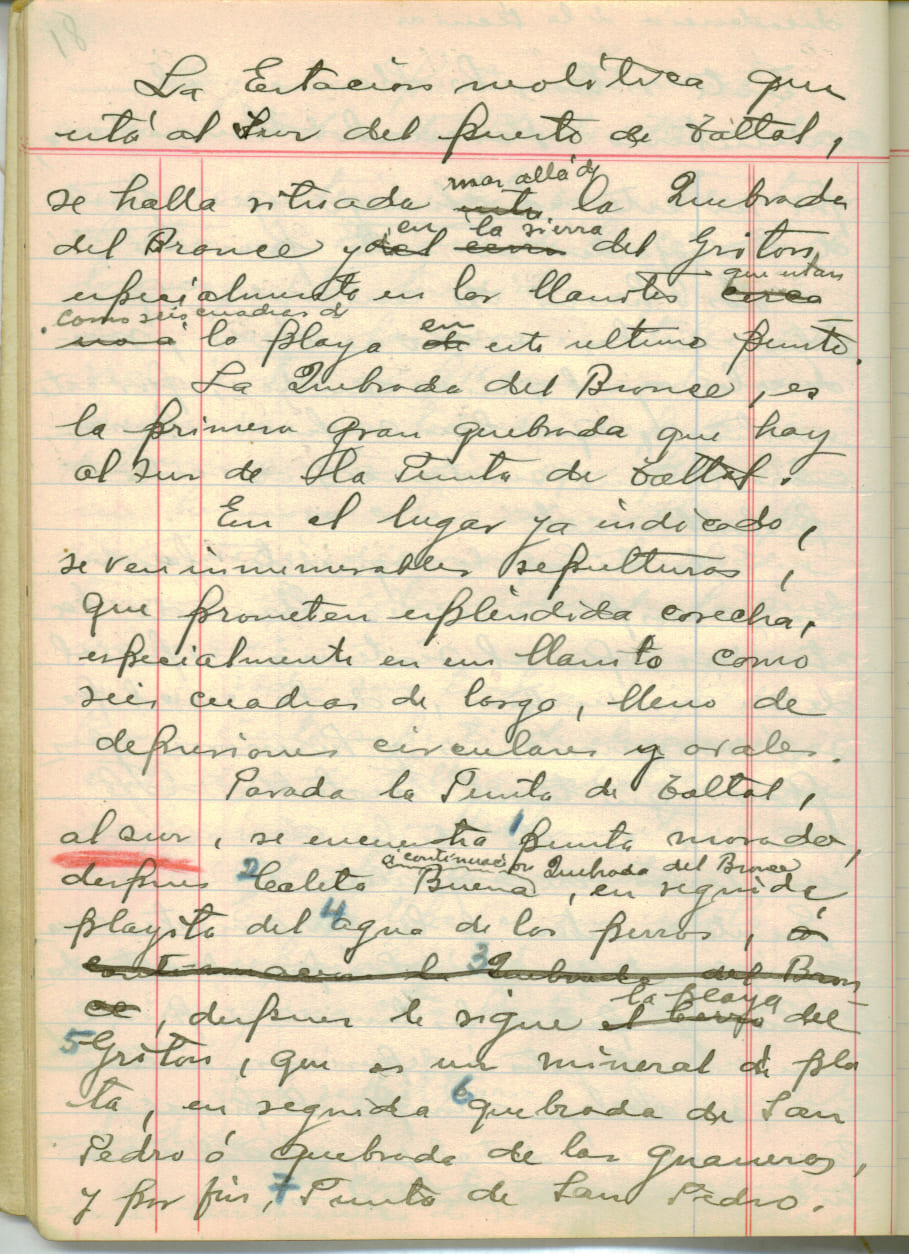 81
La Estación neolítica que
está al Sur del puerto de Taltal,
mas allá de
se halla situada entre la Quebrada
en la sierra
del Bronce y del cerro del Gritón,
que estan
especialmente en los llanitos cerca
como seis cuadras de
la playa en de este ultimo punto.
La Quebrada del Bronce, es
la primera gran quebrada que hay
al sur de la Punta de Taltal.
En el lugar ya indicado,
se ven inmumerables sepulturas,
que prometen espléndida cosecha,
especialmente en un llanito como
seis cuadras de largo, lleno de
depresiones circulares y ovales.
Pasada la Punta de Taltal,
al sur, se encuentra 1 punta morada,
a continuacion Quebrada del Bronce
despues 2 Caleta Buena, en seguida
playita del 4 agua de los perros, á
continuacion la 3 Quebrada del Bron-
ce, despues le sigue la playa el Cerro del
5 Gritón, que es un mineral de pla
ta, en seguida 6 quebrada de San
Pedro ó quebrada de las guaneras,
y por fin, 7 Punta de San Pedro.